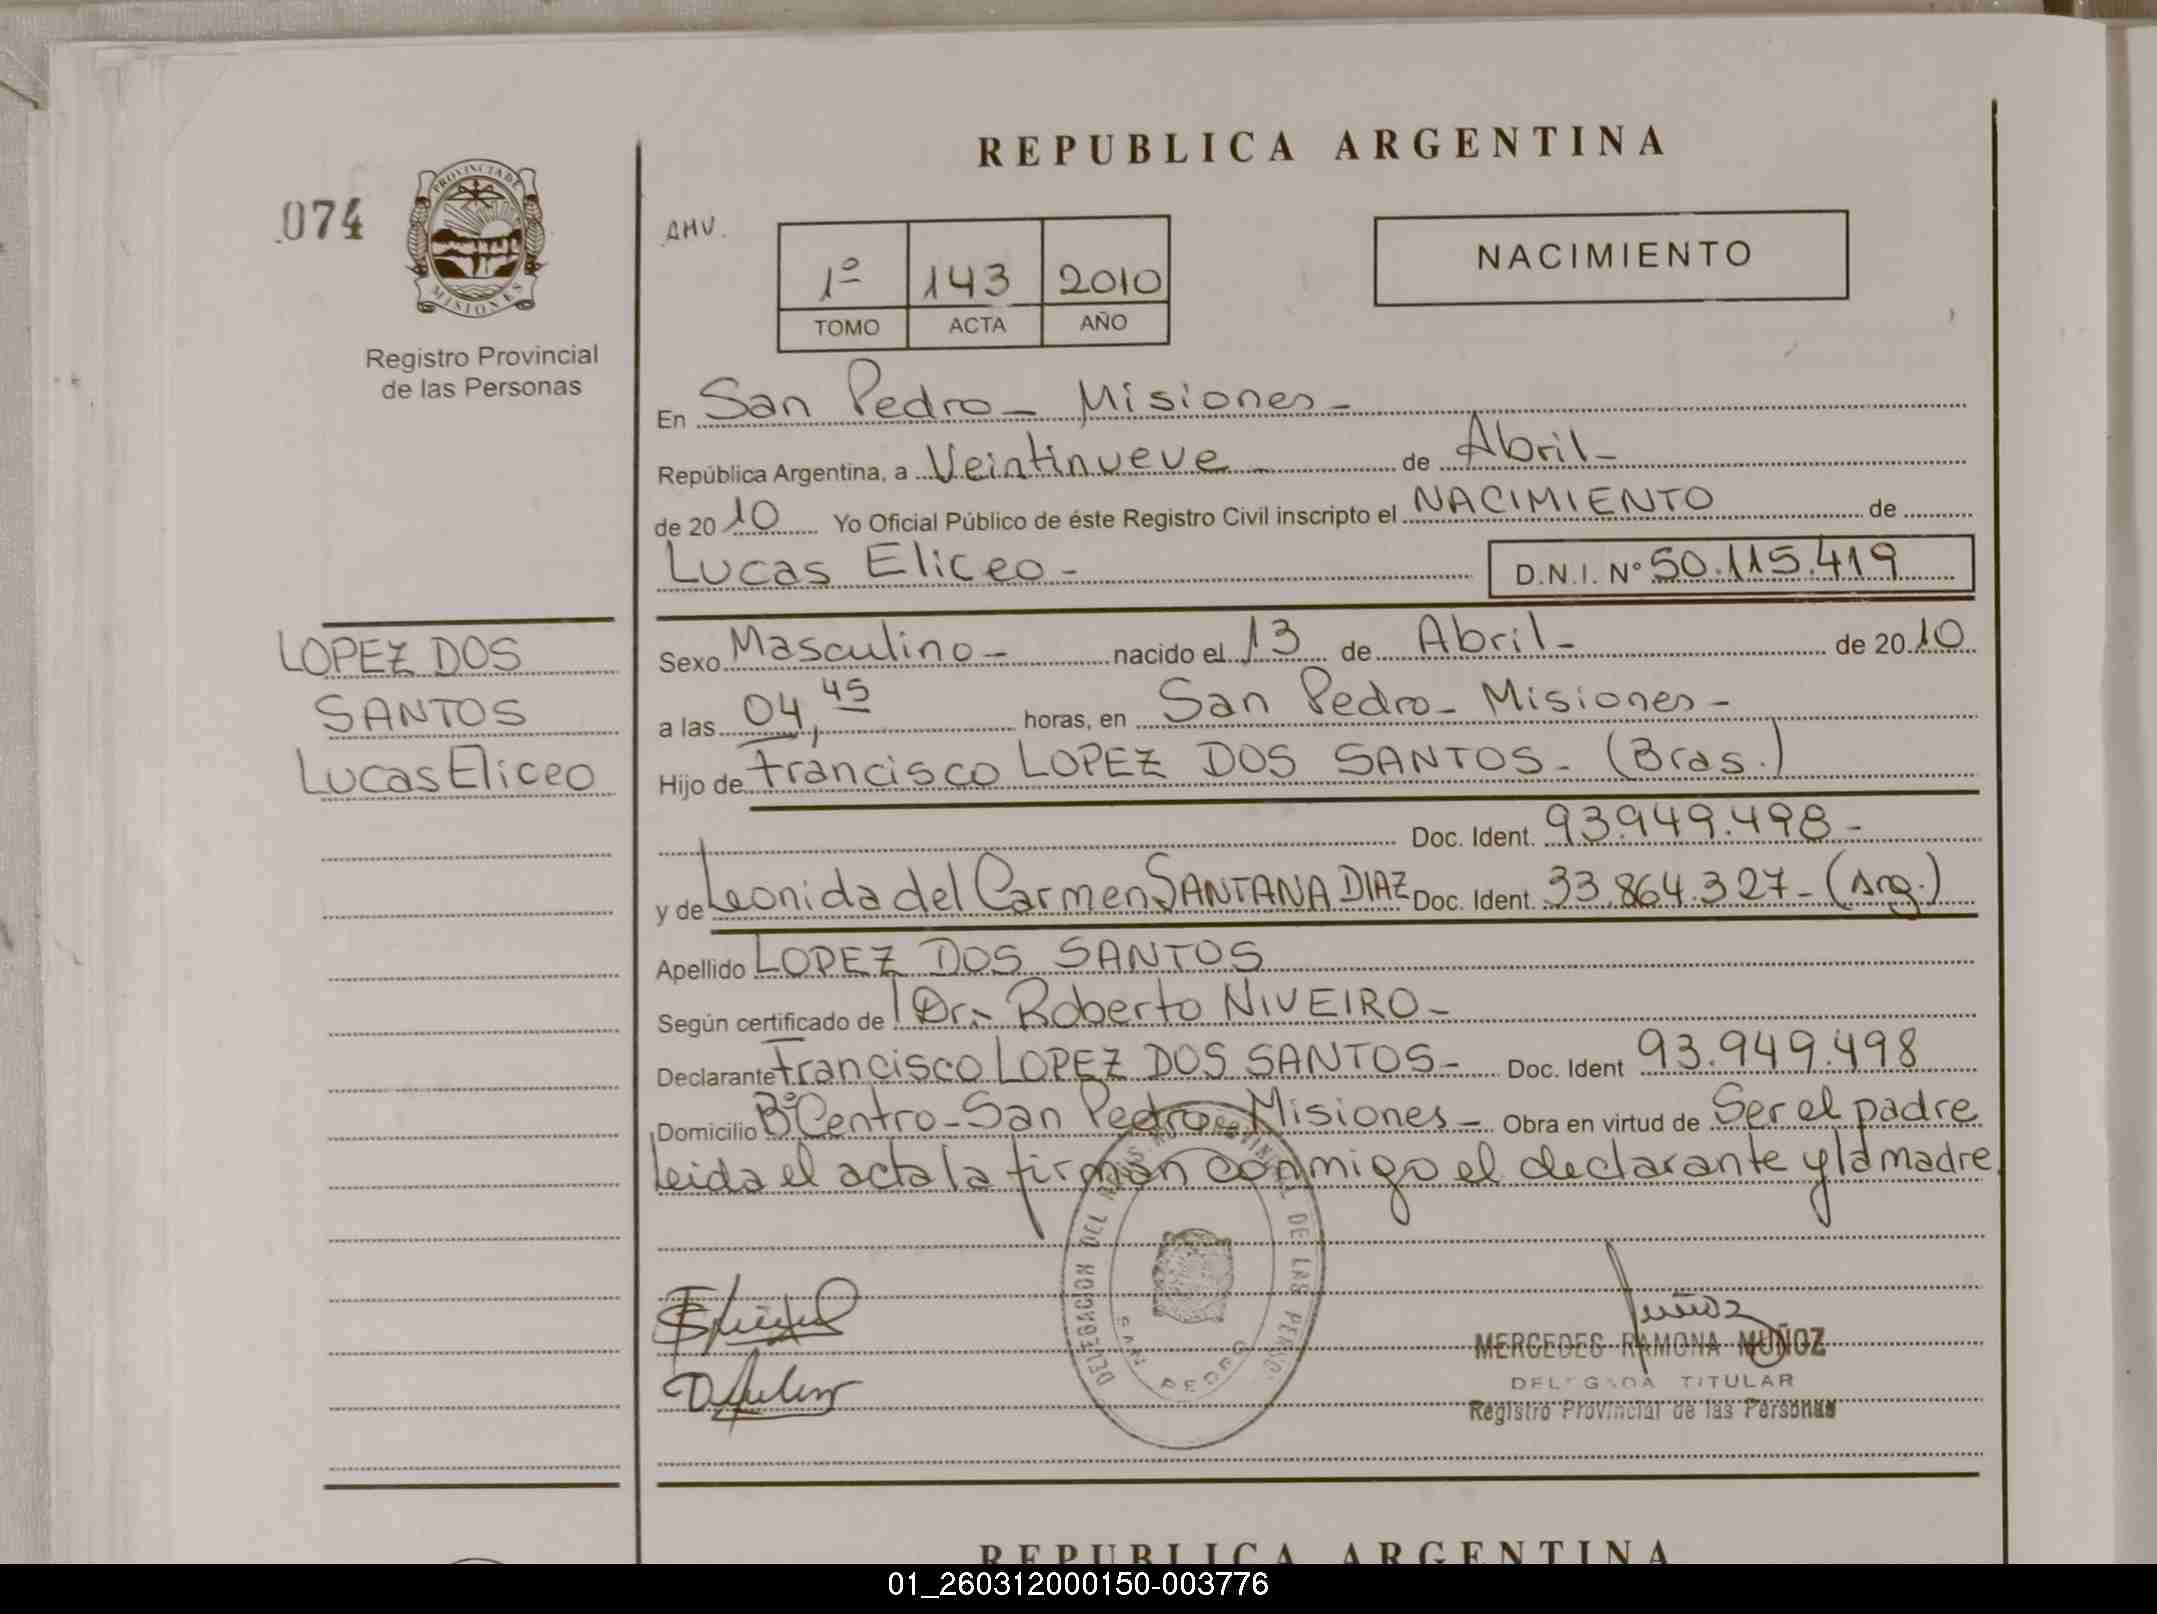 REPUBLICA ARGENTINA
074
PROVINCIA DE
MISIONES
Registro Provincial
de las Personas
AHV.
1º 143 2010
TOMO ACTA AÑO
NACIMIENTO
En San Pedro - Misiones -
República Argentina, a Veintinueve - de Abril -
de 2010 Yo Oficial Público de éste Registro Civil inscripto el NACIMIENTO de
Lucas Eliceo - D.N.I. Nº 50.115.419
LOPEZ DOS
SANTOS
Lucas Eliceo
Sexo Masculino - nacido el 13 de Abril - de 2010
a las 04,45 horas, en San Pedro - Misiones -
Hijo de Francisco LOPEZ DOS SANTOS - (Bras.)
Doc. Ident. 93.949.498 -
y de Leonida del Carmen SANTANA DIAZ Doc. Ident. 33.864.327 - (Arg.)
Apellido LOPEZ DOS SANTOS
Según certificado de Dr. Roberto NIVEIRO -
Declarante Francisco LOPEZ DOS SANTOS - Doc. Ident 93.949.498
Domicilio Bº Centro - San Pedro - Misiones - Obra en virtud de Ser el padre
Leida el acta la firman conmigo el declarante y la madre.
DELEGACION DEL DE LAS
SAN PEDRO
Muñoz
MERCEDES RAMONA MUÑOZ
DELEGADA TITULAR
Registro Provincial de las Personas
REPUBLICA ARGENTINA
01_260312000150-003776